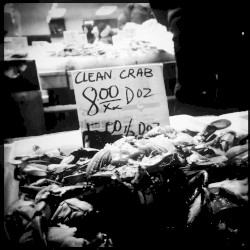 CLEAN CRAB
8.00 DOZ
DOZ